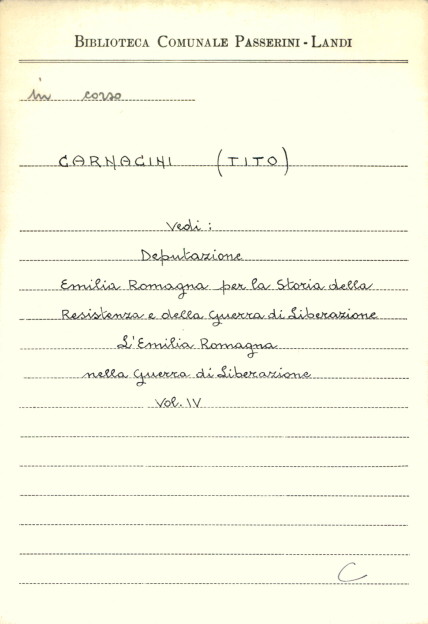 BIBLIOTECA COMUNALE PASSERINI - LANDI
in corso
CARNACINI (TITO)
Vedi:
Deputazione
Emilia Romagna per la Storia della
Resistenza e della Guerra di Liberazione
L'Emilia Romagna
nella Guerra di Liberazione
Vol. IV
C